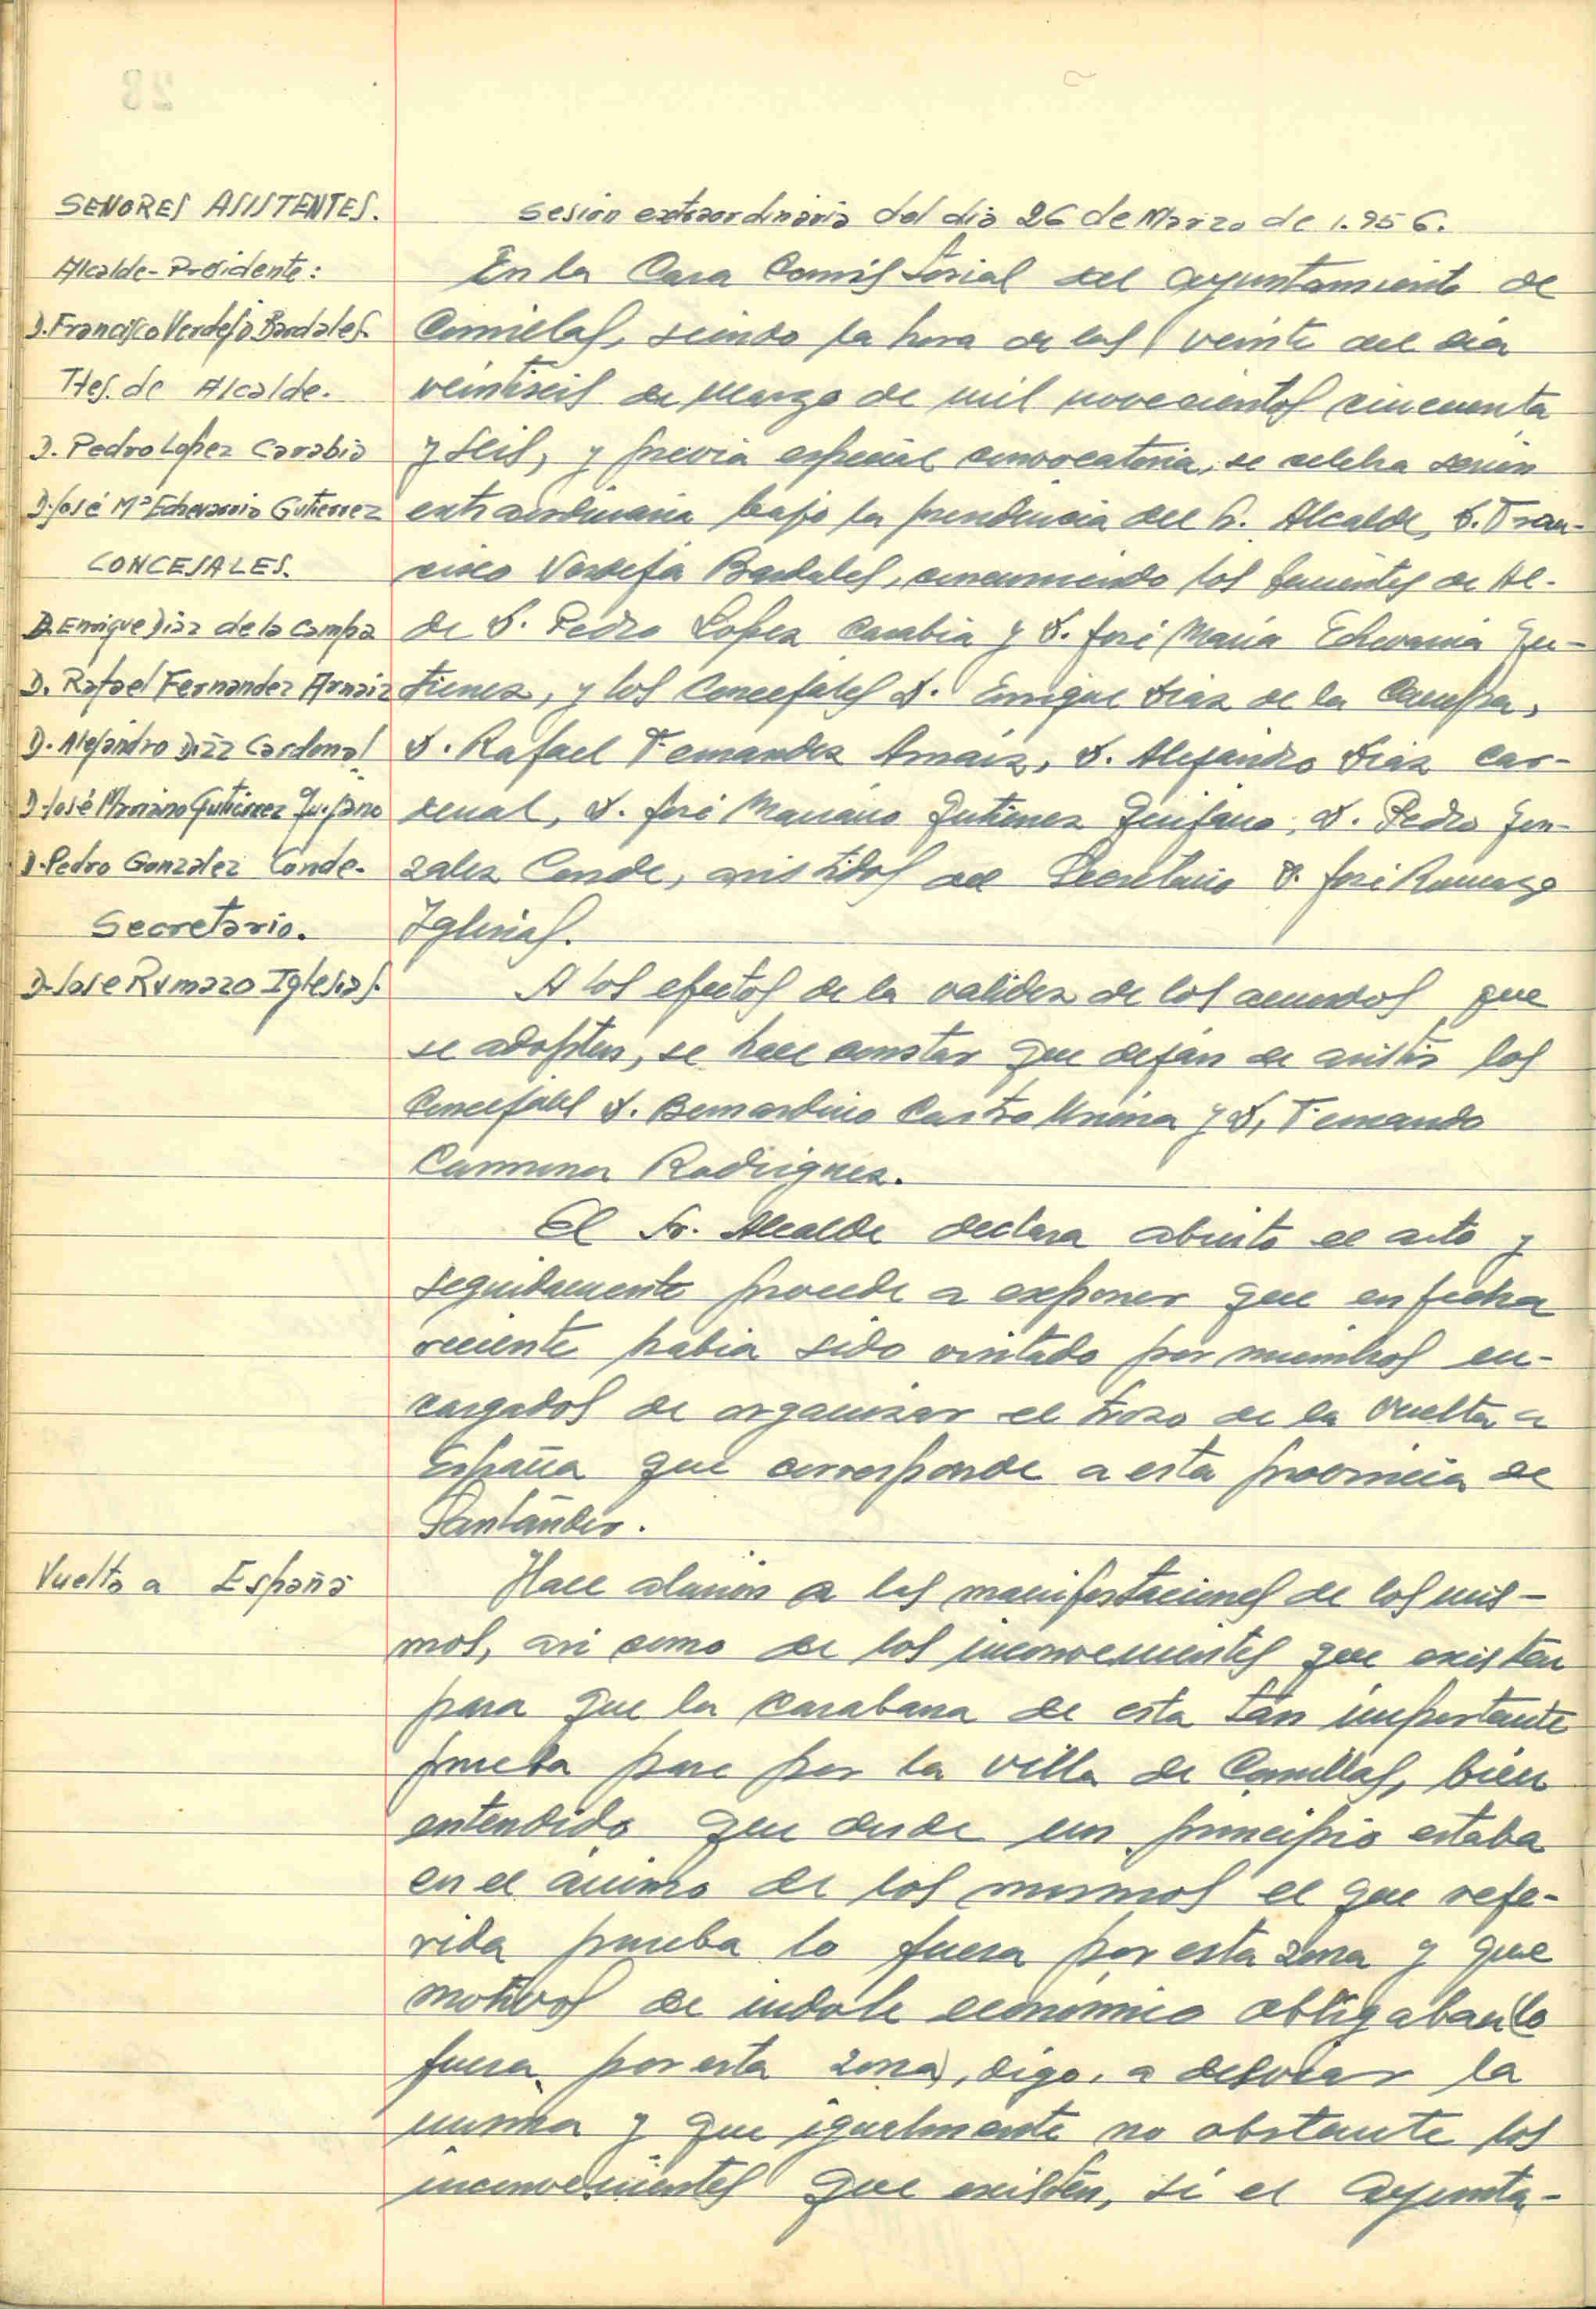 SEÑORES ASISTENTES.
Alcalde-Presidente:
D. Francisco Verdeja Bardales
Ttes. de Alcalde.
D. Pedro Lopez Carabia
D. José Mª Echevarria Gutierrez
CONCEJALES.
D. Enrique Diaz de la Campa
D. Rafael Fernandez Arnaiz
D. Alejandro Diaz Cardenal
D. José Mariano Gutiérrez Quijano
D. Pedro Gonzalez Conde.
Secretario.
D. Jose Rumazo Iglesias.
Vuelta a España
Sesion extraordinaria del dia 26 de Marzo de 1.956.
En la Casa Consistorial del Ayuntamiento de
Comillas, siendo la hora de las veinte del dia
veintiseis de Marzo de mil novecientos cincuenta
y seis, y previa especial convocatoria, se celebra sesión
extraordinaria bajo la presidencia del Sr. Alcalde, D. Fran-
cisco Verdeja Bardales, concurriendo los Tenientes de Al-
de D. Pedro Lopez Carabia y D. José María Echevarria Gu-
tierrez, y los Concejales D. Enrique Diaz de la Campa,
D. Rafael Fernandez Arnaiz, D. Alejandro Diaz Car-
denal, D. José Mariano Gutierrez Quijano, D. Pedro Gon-
zalez Conde, asistidos del Secretario D. José Rumazo
Iglesias.
A los efectos de la validez de los acuerdos que
se adopten, se hace constar que dejan de asistir los
Concejales D. Bernardino Castro y D. Fernando
Rodriguez.
El Sr. Alcalde declara abierto el acto y
seguidamente procede a exponer que en fecha
reciente habia sido visitado por miembros en-
cargados de organizar el trozo de la Vuelta a
España que corresponde a esta provincia de
Santander.
Hace alusión a las manifestaciones de los mis-
mos, asi como de los inconvenientes que existen
para que la carabana de esta tan importante
prueba pase por la villa de Comillas, bien
entendido que desde un principio estaba
en el ánimo de los mismos el que refe-
rida prueba lo fuera por esta zona y que
motivos de indole económico obligaban (lo
fuera por esta zona), digo, a desviar la
misma y que igualmente no obstante los
inconvenientes que existen, si el Ayunta-